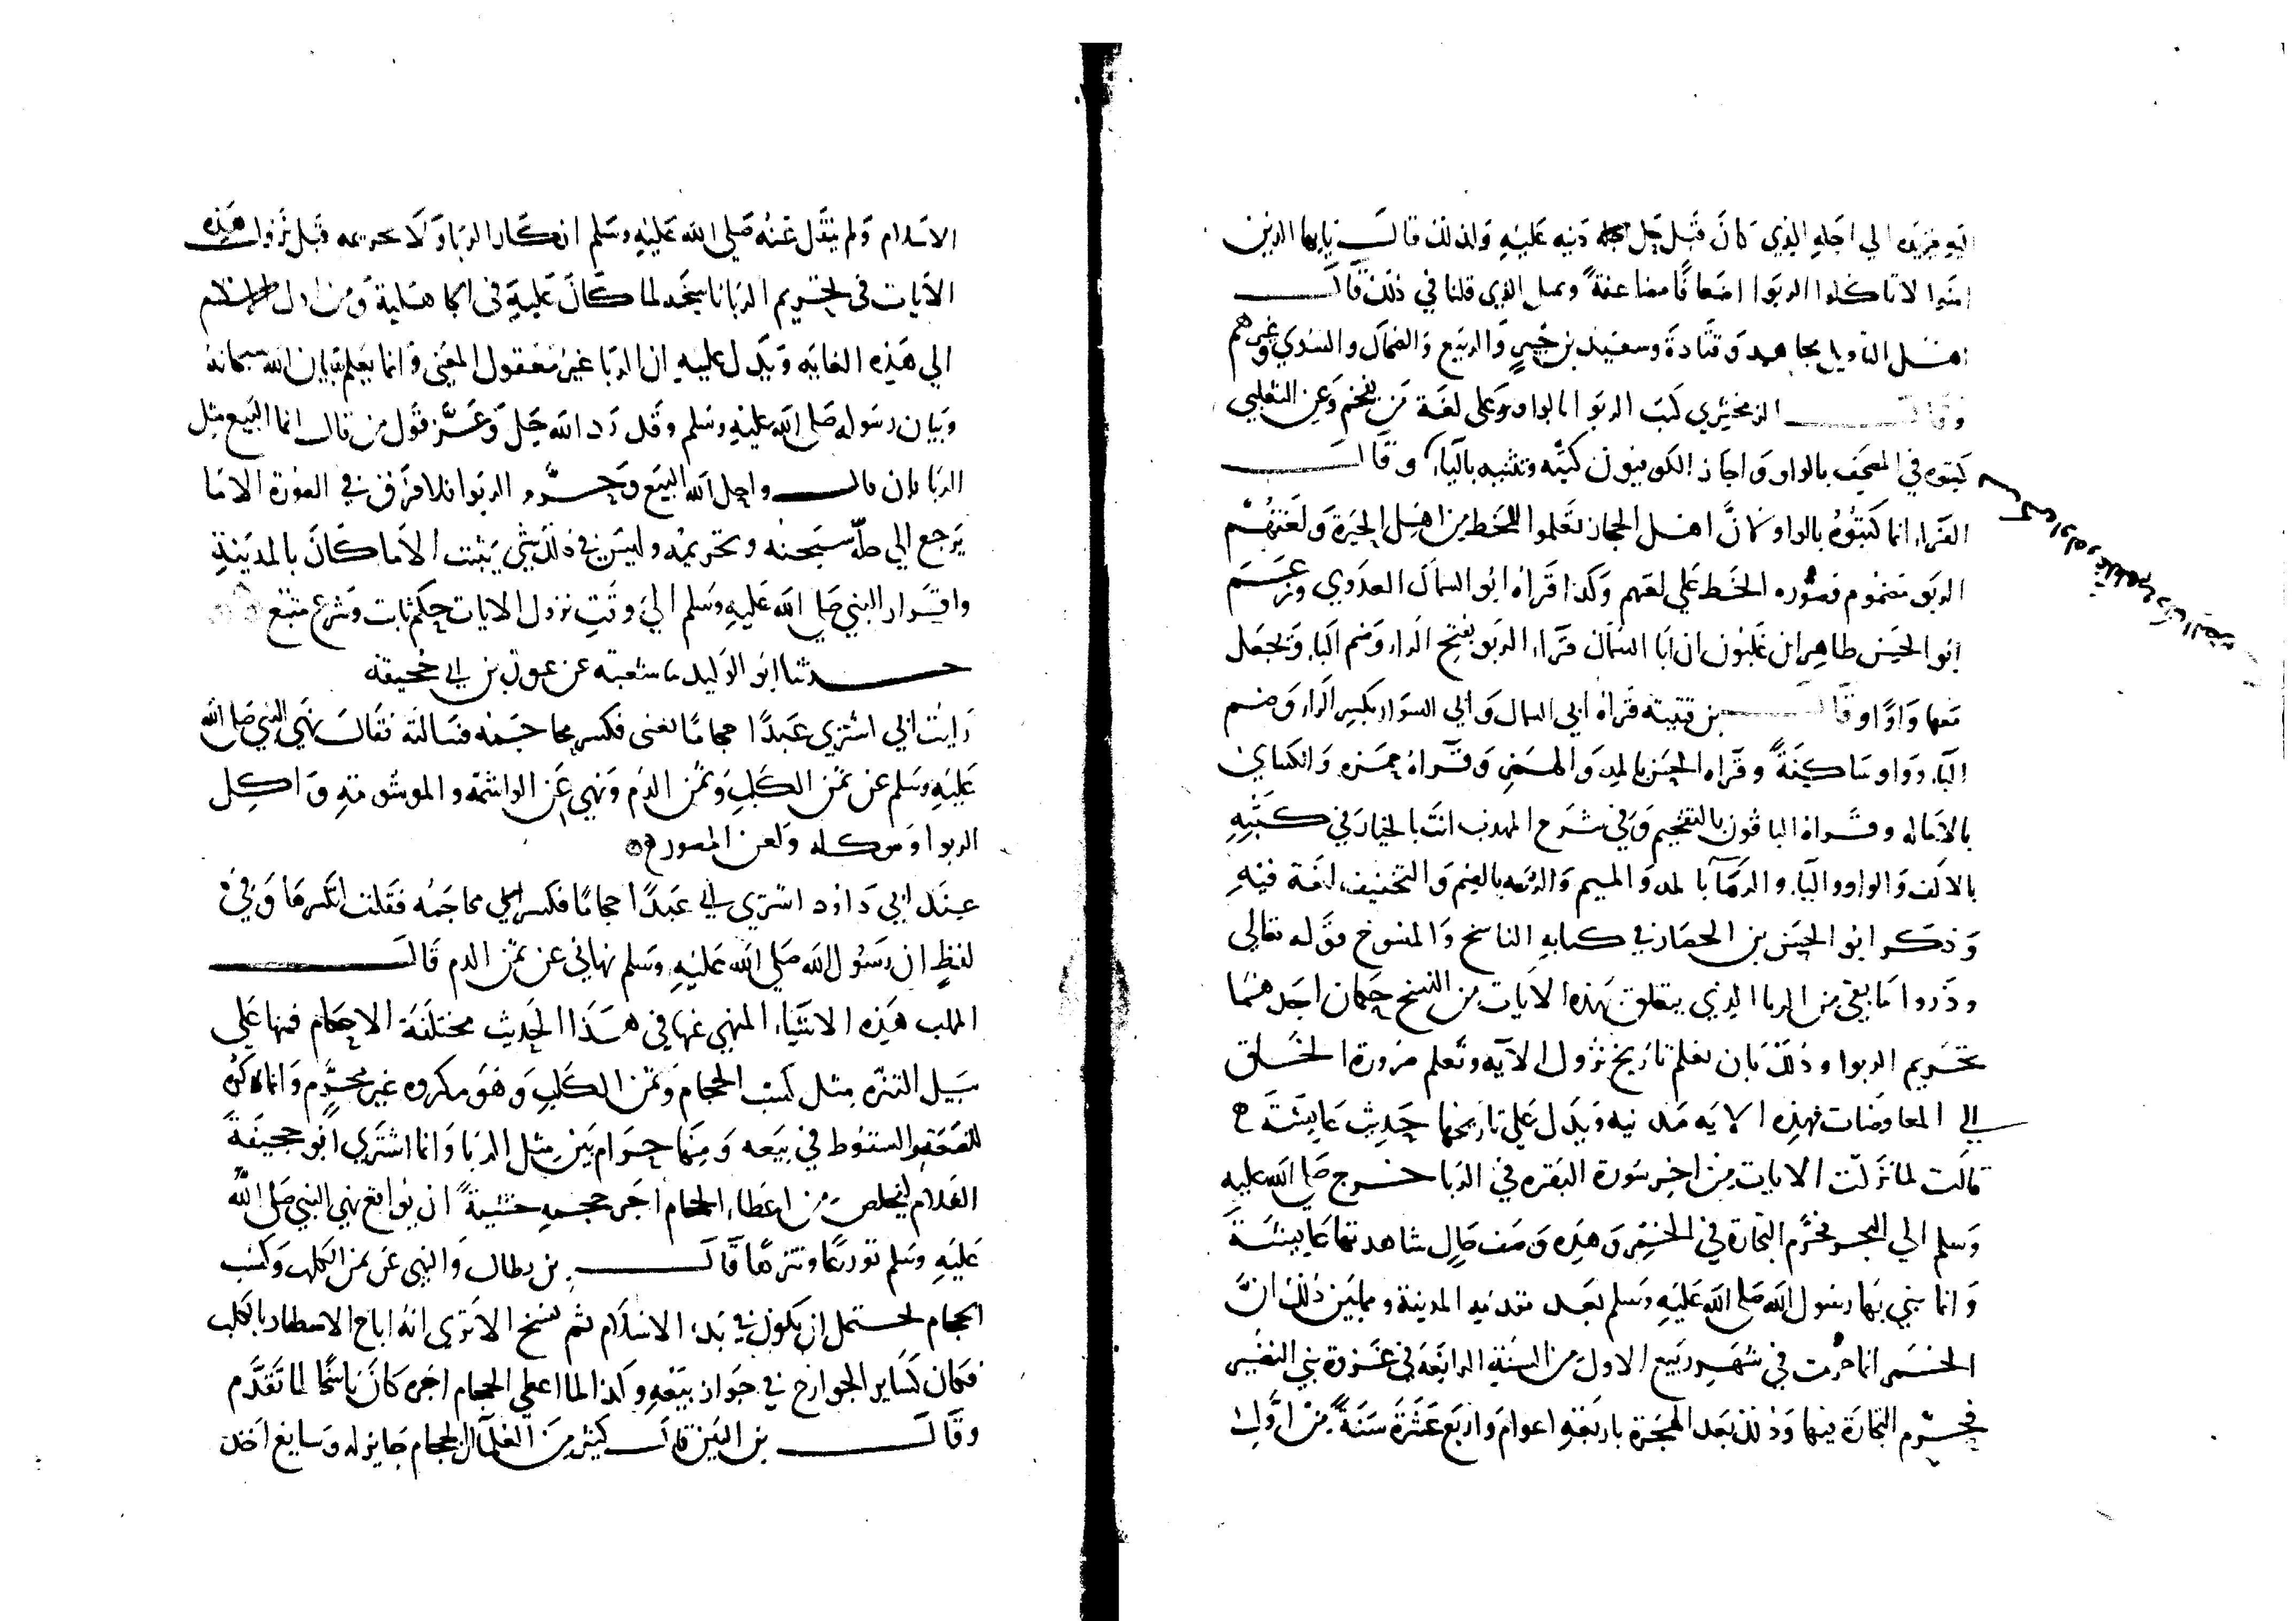 اليه مزيده الي اجله الذي كان قبل حل دينه عليه ولذلك قال يايها الذين
امنوا لا تاكلوا الربوا اضعافا مضاعفة وبمثل الذي قلنا في ذلك قال
اهل التاويل مجاهد وقتادة وسعيد بن جبير والربيع والضحاك والسدي وغيرهم
وقال الزمخشري كتب الربوا بالواو وعلى لغة من يفخم وعن الثعلبي
كتبوه في المصحف بالواو واجاز الكوفيون كتبه وتثنيه بالياء وقال
الفراء انما كتبوه بالواو كان اهل الحجاز تعلموا الخط من اهل الحيرة ولغتهم
الربو مضموم فصوره الخط علي لغتهم وكذا قراه ابو السمال العدوي وزعم
ابو الحسن طاهر ابن غلبون ان ابا السمال قراء الربو بفتح الراء وضم الباء ويجعل
معها واوا وقال بن قتيبة قراه ابي السمال وابي السوار بكسر الراء وضم
الباء وواو ساكنة وقراه الحسن بالمد والهمز وقراه حمزه والكساي
بالاماله وقراه الباقون بالتفخيم وفي شرح المهدب انت بالخيار في كتبه
بالالف والواو والياء والرما بالمد والميم والربيه بالضم والتخفيف لغة فيه
وذكر ابو الحسن بن الحصار في كتابه الناسخ والمنسوخ قوله تعالى
وذروا ما بقي من الربا الذي يتعلق بهذه الايات من النسخ حكمان احدهما
تحريم الربوا وذلك بان نعلم تاريخ نزول الايه ونعلم ضرورة الخلق
الي المعاوضات فهذه الايه مدنيه ويدل علي تاريخها حديث عايشة ح
قالت لما نزلت الايات من اخر سورة البقره في الربا خرج صلى الله عليه
وسلم الي المسجد فحرم التجارة في الخمر وهذه وصف حال شاهدتها عايشة
وانما بني بها رسول الله صلى الله عليه وسلم بعد مقدمه المدينة ومما يبين ذلك ان
الخمر انما حرمت في شهر ربيع الاول من السنة الرابعة في غزوة بني النضير
فحرم التجارة فيها وذلك بعد الهجرة باربعة اعوام واربع عشرة سنة من اول
الاسلام ولم ينقل عنه صلي الله عليه وسلم انكار الربا ولا تحريمه قبل نزول هذه
الايات في لتحريم الربا ناسخه لما كان عليه في الجاهلية ومن اول الاسلام
الي هذه الغايه ويدل عليه ان الربا غير معقول المعني وانما يعلم ببيان الله سبحانه
وبيان رسوله صلى الله عليه وسلم وقد رد الله جل وعز قول من قال انما البيع مثل
الربا بان قال واحل الله البيع وحرم الربوا فلا فرق في الصورة الا ما
يرجع الي حله سبحنه وتحريمه وليس في ذلك شي يثبت الا ما كان بالمدينة
واقرار النبي صلى الله عليه وسلم الي وقت نزول الايات حكم ثابت وشرع متبع
حدثنا ابو الوليد نا شعبة عن عون بن ابي جحيفة
رايت ابي اشتري عبدا حجاما يعني فكسر محاجمه فسالته فقال نهي النبي صلى الله
عليه وسلم عن ثمن الكلب وثمن الدم ونهي عن الواشمة والموشومة واكل
الربوا وموكله ولعن المصور
عند ابي داود اشتري ابي عبدا حجاما فكسر محاجمه فقلت اتكسرها وفي
لفظ ان رسول الله صلي الله عليه وسلم نهاني عن ثمن الدم قال
المهلب هذه الاشياء المنهي عنها في هذا الحديث مختلفة الاحكام فمنها علي
سبيل التنزه مثل كسب الحجام وثمن الكلب وهو مكروه غير محرم وانما كره
للضعة والسقوط في بيعه ومنها حرام بين مثل الربا وانما اشتري ابو جحيفة
الغلام ليخلص من اعطاء الحجام اجر حجمه خشية ان يواقع نهي النبي صلى الله
عليه وسلم تورعا وتنزها قال بن بطال والنهي عن ثمن الكلب وكسب
الحجام يحتمل ان يكون في بدء الاسلام ثم نسخ الا تري انه اباح الاصطياد بالكلب
فكان كساير الجوارح في جواز بيعه وكذا لما اعطي الحجام اجره كان ناسخا لما تقدم
وقال بن التين قال كثير من العلماء ان الحجام جايز له وسايغ اخذ